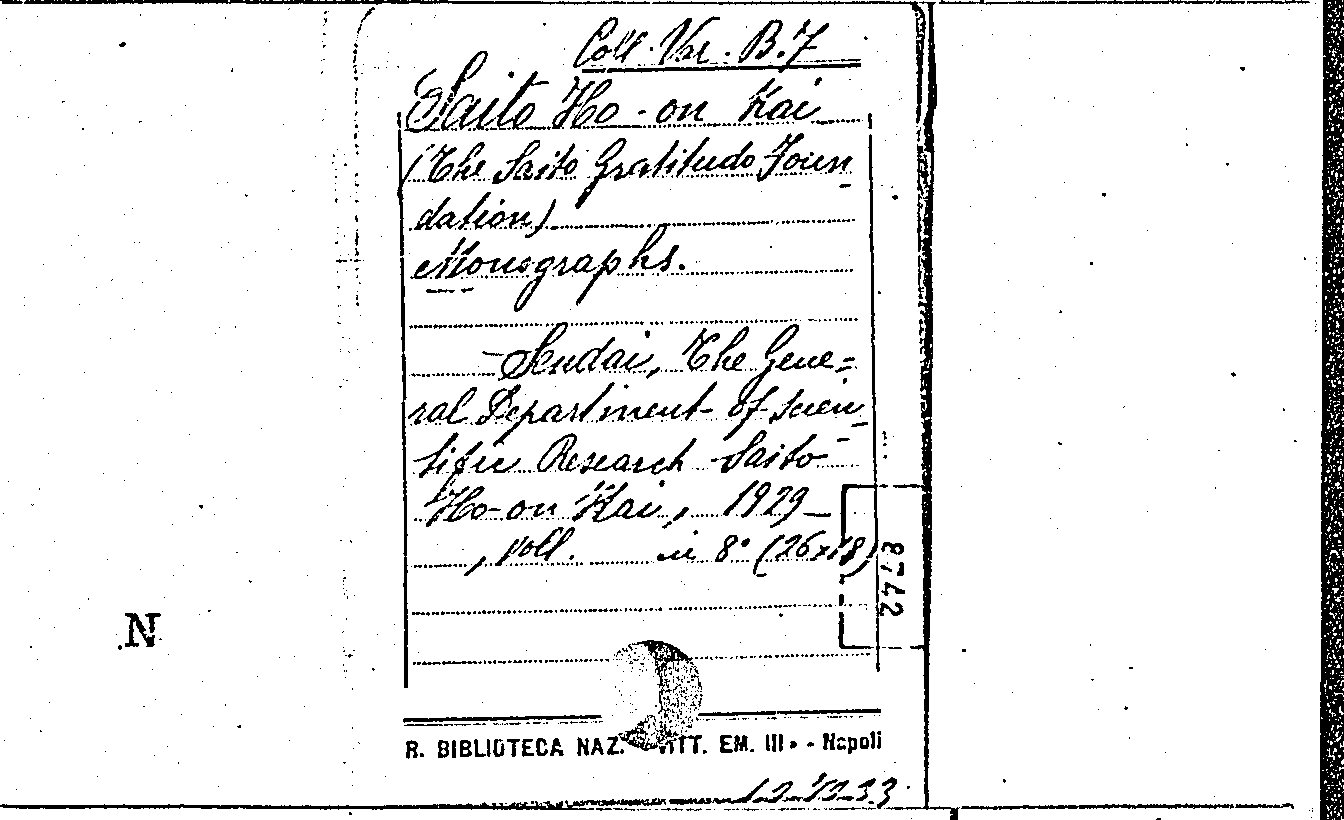 Coll. Var. B. 7
Saito Ho-on Kai
(The Saito Gratitudo Foun
dation)
Monographs.
Sendai, The Gene=
ral Department of Scien
tific Research Saito
Ho-on Kai, 1929_
, voll. in 8° (26x18)
8742
N
R. BIBLIOTECA NAZ. VITT. EM. III» - Napoli